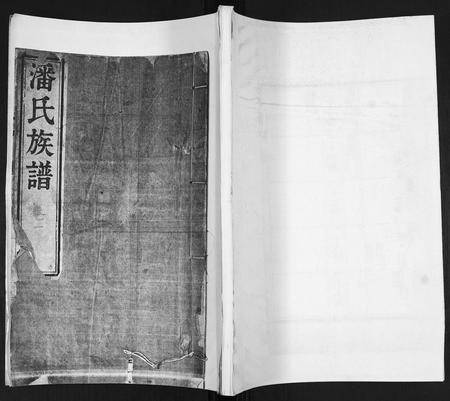 潘氏族譜